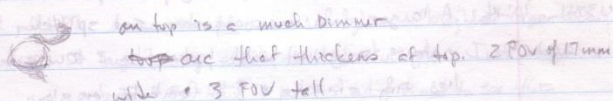 on top is a much Dimmer
arc that thickens at top. 2 FOV of 17mm
wide 3 FOV tall